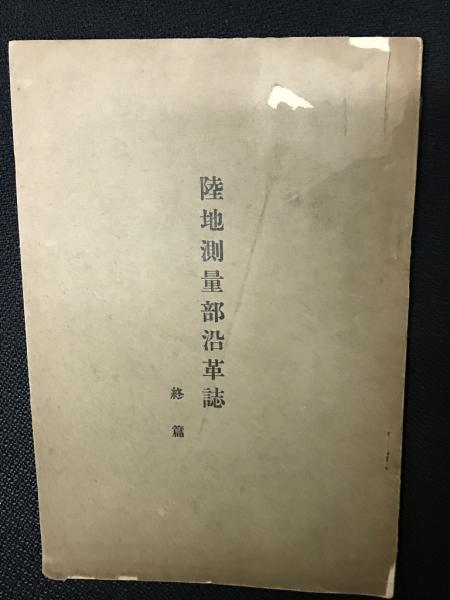 陸地測量部沿革誌
終篇